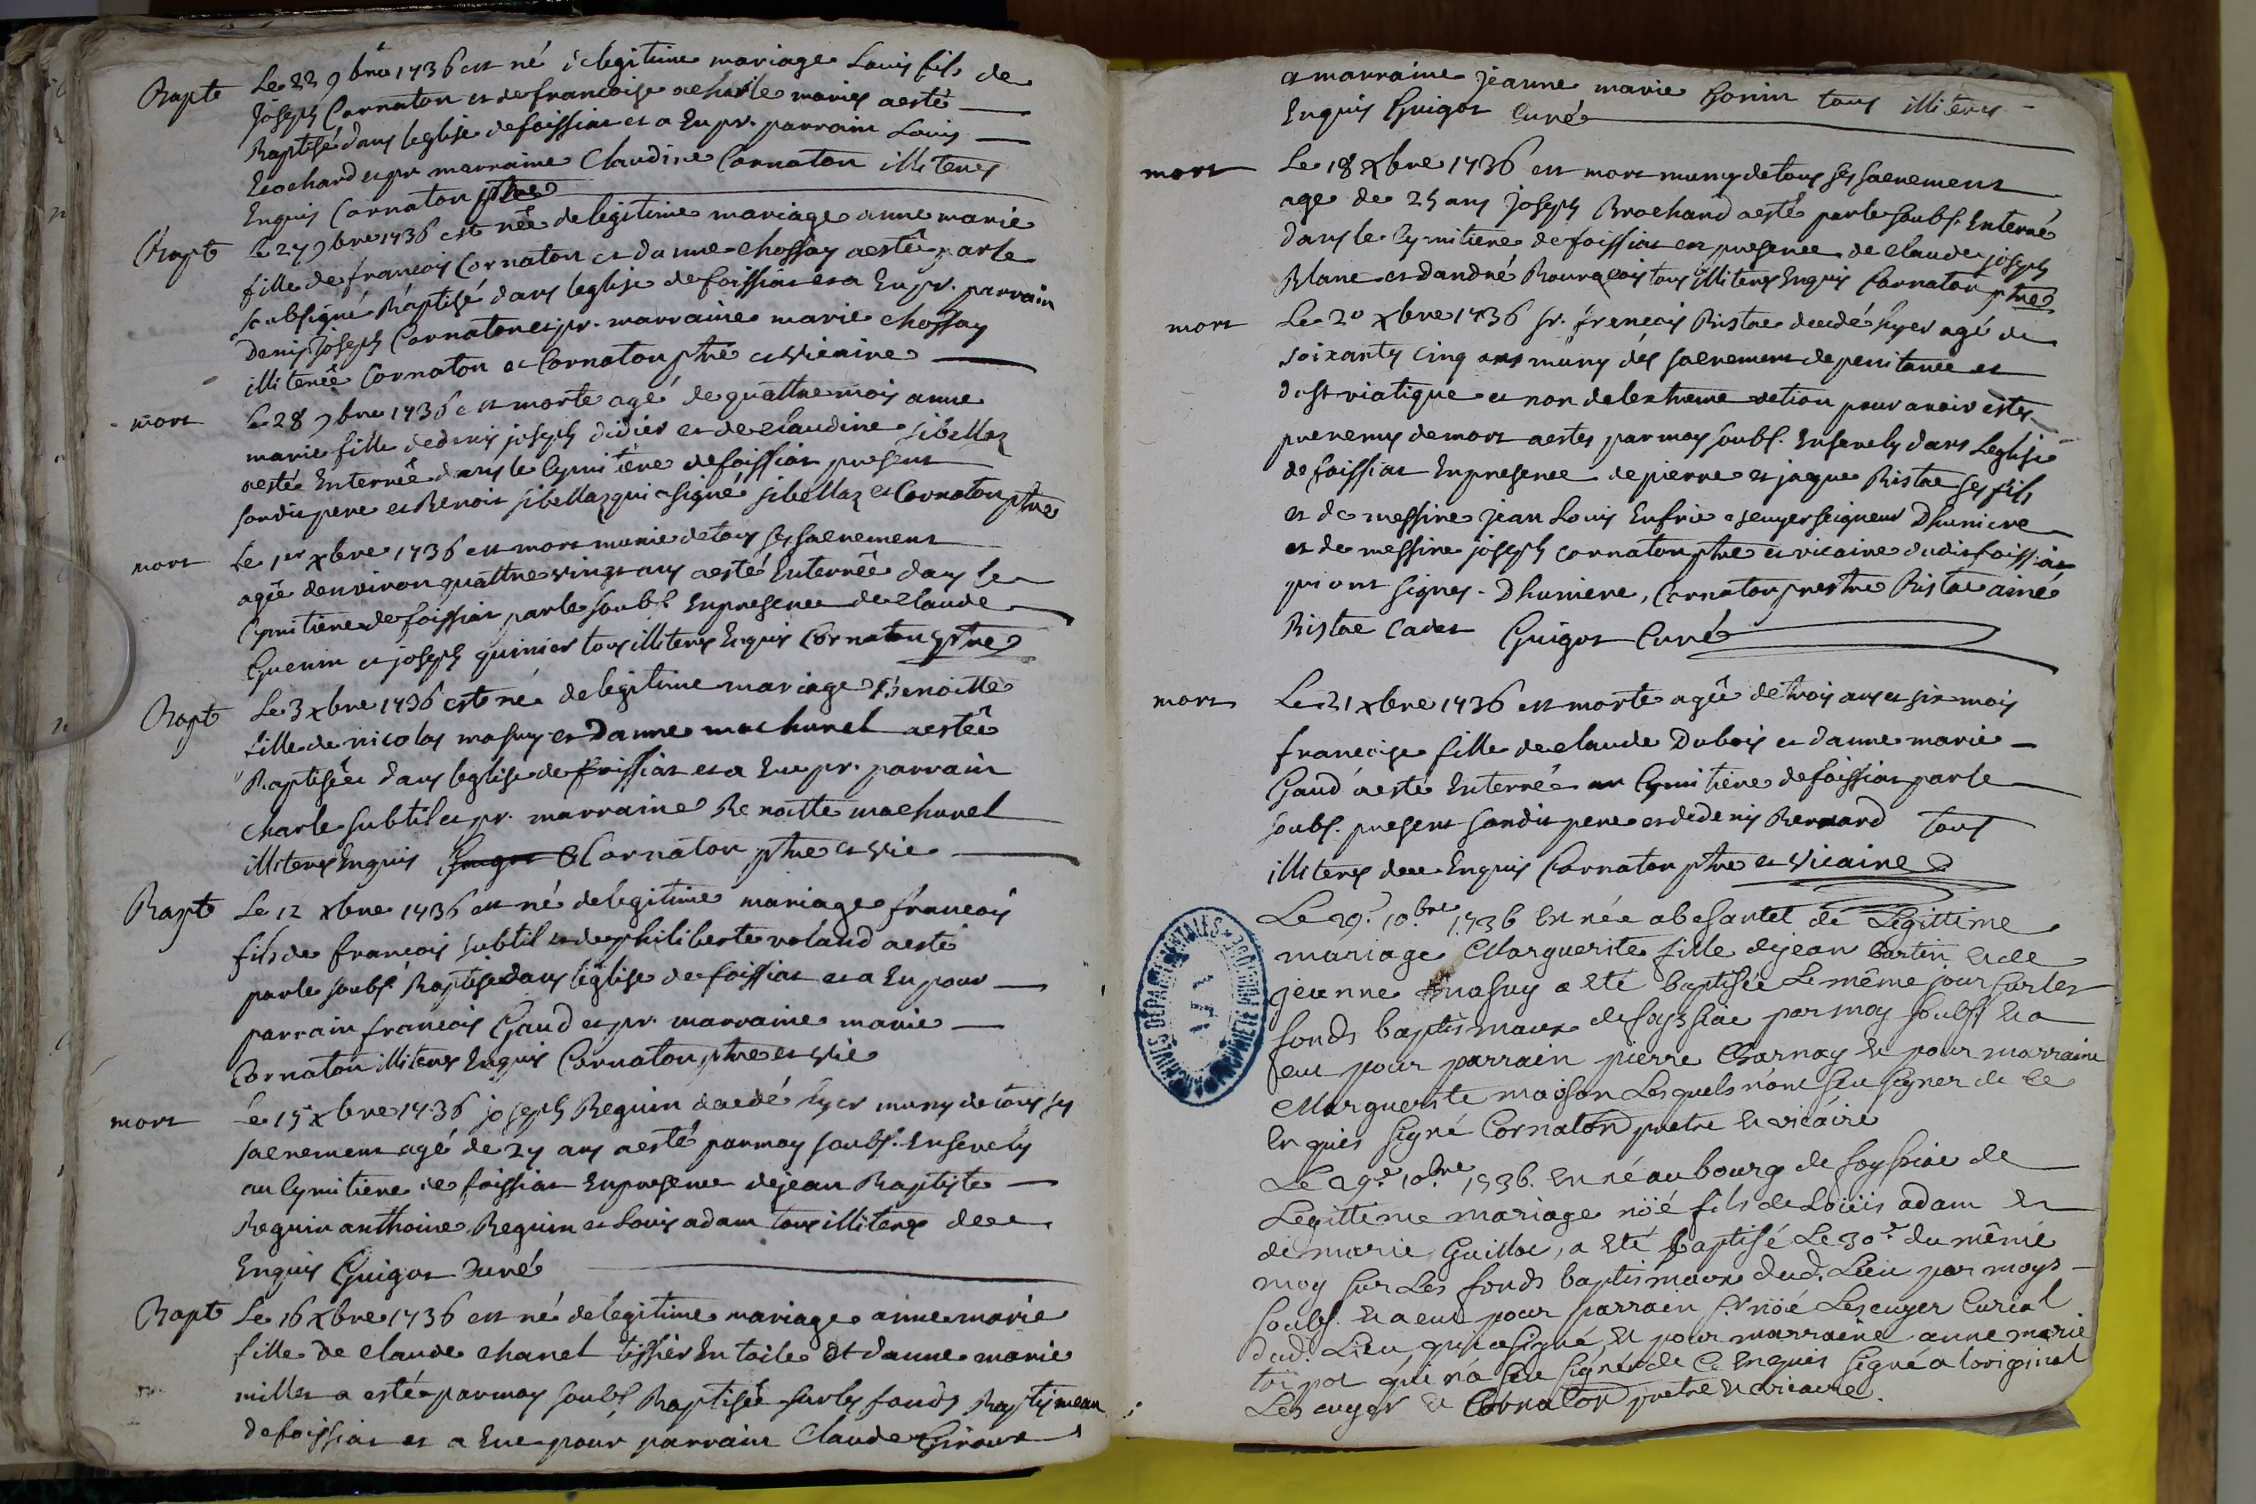 Bapt Le 22 9bre 1736 est né de legitime mariage Louis fils de
Joseph Cornaton et de francoise mariés aesté
Baptisé dans leglise de foissiat et a Eu pr. parrain Louis
Brochard et pr marraine Claudine Cornaton illiterés
Enquis Cornaton ptre
Bapt Le 27 9bre 1736 est née de legitime mariage anne marie
fille de francois Cornaton et danne chossay aesté parle
soubsigné Baptisé dans leglise de foissiat et a Eu pr. parrain
denis Joseph Cornaton et pr. marraine marie chossay
illiterée Cornaton et Cornaton ptre et vicaire
mort Le 28 9bre 1736 est morte agé de quattre mois anne
marie fille de denis joseph didier et de claudine sibellaz
aestée Enterrée dans le Cymitiere de foissiat present
sondit pere et Benoit sibellaz qui a signé sibellaz et Cornaton ptre
mort Le 1er xbre 1736 est mort munie de tous ses sacrement
agée denviron quattre vingt ans aesté Enterrée dans le
Cymitiere de foissiat par le soubs. En presence de claude
Guerin et joseph quinier tous illiterés Enquis Cornaton ptre
Bapt Le 3 xbre 1736 est né de legitime mariage Benoitte
fille de nicolas masuy et danne machurel aestée
Baptisée dans leglise de foissiat et a Eu pr. parrain
charle subtil et pr. marraine Benoitte machurel
illiterés Enquis Guigot Cornaton ptre et vic
Bapt Le 12 xbre 1736 est né de legitime mariage francois
fils de francois subtil et de philiberte voland aesté
parle soubs. Baptisé dans leglise de foissiat et a Eu pour
parrain francois Gaud et pr. marraine marie
Cornaton illiterés Enquis Cornaton ptre et vic
mort Le 15 xbre 1736 joseph Reguin decedé hyer muny de tous ses
sacrement agé de 27 ans aesté parmoy soubs. Ensevely
au Cymitiere de foissiat En presence de jean Baptiste
Reguin anthoine Reguin et Louis adam tous illiterés de ce
Enquis Guigot Curé
Bapt Le 16 xbre 1736 est né de legitime mariage anne marie
fille de claude chanel tissier En toile et danne marie
millet a esté parmoy soubs. Baptisée sur les fonds Baptismeau
de foissiat et a Eue pour parrain Claude Giroux
a marraine jeanne marie Gonin tous illiterés
Enquis Guigot Curé
mort Le 18 xbre 1736 est mort muny de tous ses sacrement
age de 25 ans joseph Brochard aesté parle soubs. Enterré
dans le Cymitiere de foissiat en presence de claude joseph
Blanc et dandré Bourgeois tous illiterés Enquis Cornaton ptre
mort Le 20 xbre 1736 sr. francois Ristac decedé hyer agé de
soixante cinq ans muny des sacrement de penitance et
du st viatique et non de lextreme onction pour avoir estes
prevenus de mort aestes par moy soubs. Ensevely dans Leglise
de foissiat En presence de pierre et jaque Ristac ses fils
et de messire jean Louis Enfrie escuyer seigneur Dhumiere
et de messire joseph Cornaton ptre et vicaire dudit foissiat
qui ont signes. Dhumiere, Cornaton prestre Ristac ainé
Ristac Cadet Guigot Curé
mort Le 21 xbre 1736 est morte agée de trois ans et six mois
francoise fille de claude Dubois et danne marie
Gaud aesté Enterrée au Cymitiere de foissiat parle
soubs. present sondit pere et de denis Bernard tous
illiterés de ce Enquis Cornaton ptre et vicaire
Le 29.e 10.bre 1736 est née a besantet de Légittime
mariage Marguerite fille de jean bartin et de
jeanne masuy a été baptisée Le même jour sur les
fonds baptismaux de foyssiac par moy soubs. et a
eut pour parrain pierre Charnay et pour marraine
Marguerite maison Lesquels n'ont sceu signer de ce
Enquis signé Cornaton pretre et vicaire
Le 29.e 10.bre 1736. est né au bourg de foyssiac de
Légittime mariage noé fils de Loüis adam et
de marie Guillot, a été baptisé Le 30.e du même
moy sur Les fonds baptismaux dud. Lieu par moy
soubs. et a eut pour parrain s.r noé Lescuyer Curial
dud. Lieu qui a signé et pour marraine anne marie
qui n'a sceu signer de ce Enquis signé a loriginal
Lescuyer et Cornaton pretre et vicaire.